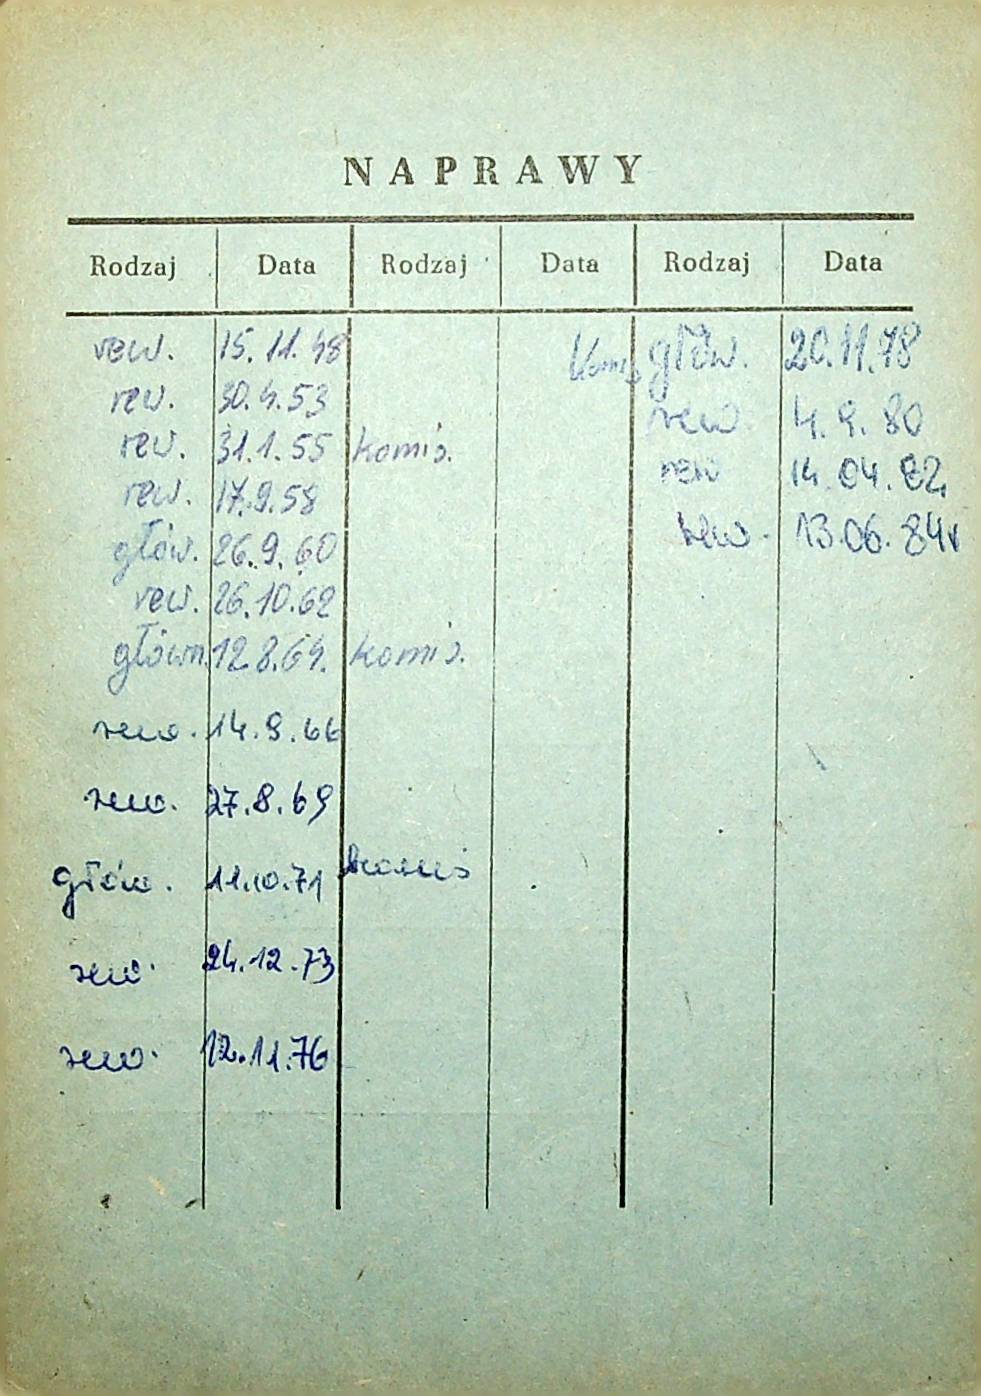 NAPRAWY
Rodzaj Data Rodzaj Data Rodzaj Data
rew. 15.11.48
rew. 30.4.53
rew. 31.1.55 komis.
rew. 17.9.58
głów. 26.9.60
rew. 26.10.62
główn. 12.8.64. komis.
rew. 14.9.66
rew. 27.8.69
głów. 11.10.71 komis
rew. 24.12.73
rew. 12.11.76
Komis głów. 20.11.78
rew 4.9.80
rew 14.04.82
rew. 13.06.84r